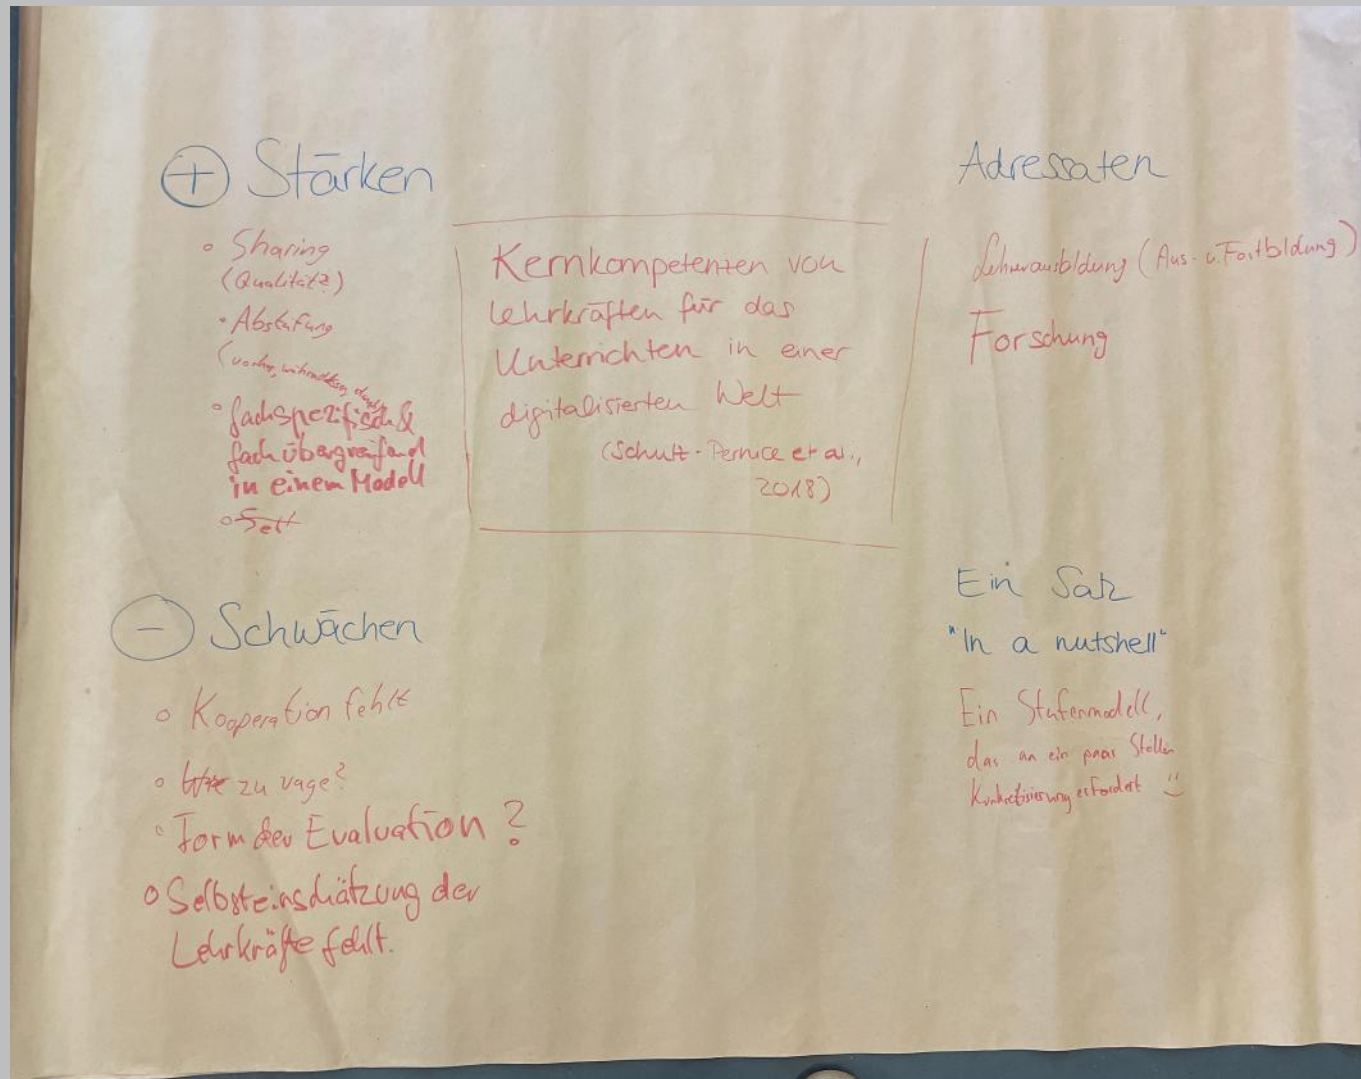 + Stärken
Sharing
(Qualität?)
Abstufung
(vorher, während,
fachspezifisch &
fachübergreifend
in einem Modell
Kernkompetenzen von
Lehrkräften für das
Unterrichten in einer
digitalisierten Welt
(Schultz-Pernice et al.,
2018)
Adressaten
Lehrerausbildung (Aus- u. Fortbildung)
Forschung
- Schwächen
Kooperation fehlt
zu vage?
Form der Evaluation?
Selbsteinschätzung der
Lehrkräfte fehlt.
Ein Satz
"In a nutshell"
Ein Stufenmodell,
das an ein paar Stellen
Konkretisierung erfordert